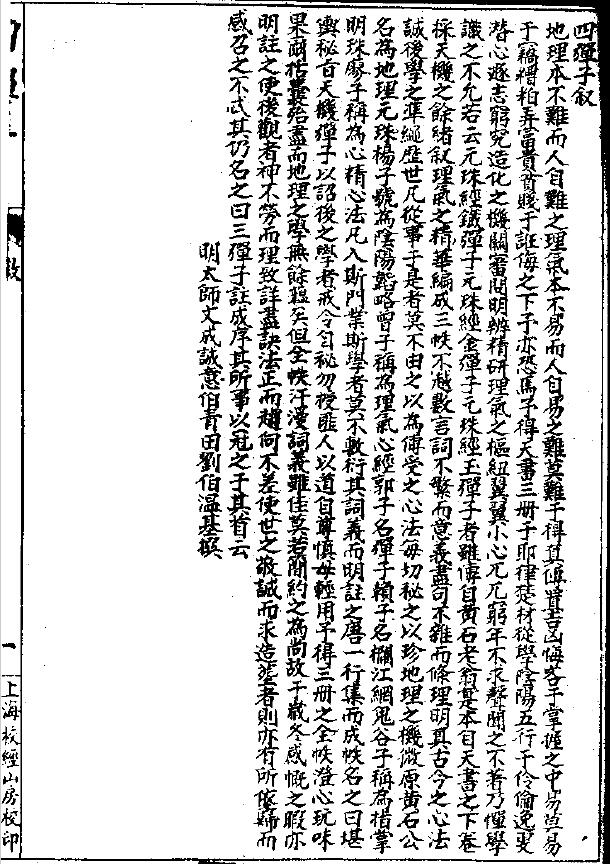 四彈子敘
地理本不難而人自難之理氣本不易而人自易之難莫難于得其傳賢吉凶悔吝于掌握之中易莫易
于竊糟粕弄富貴貧賤于誑侮之下予亦恐焉予得天書三册于耶律楚材從學陰陽五行于伶倫逸叟
潛心遯志窮究造化之機關審問明辨精研理氣之樞紐翼翼小心兀兀窮年不求聲聞之不著乃懼學
識之不允若云元珠經鐵彈子元珠經金彈子元珠經玉彈子者雖傳自黃石老翁是本自天書之下卷
採天機之餘緒敘理氣之精華編成三帙不越數言詞不繁而意義盡句不雜而條理明真古今之心法
誠後學之準繩歷世凡從事于是者莫不由之以為傳受之心法每切秘之以珍地理之機微原黃石公
名為地理元珠楊子號為陰陽韜略曾子稱為理氣心經郭子名彈子賴子名欄江網鬼谷子稱為指掌
明珠廖子稱為心精心法凡入斯門業斯學者莫不敷衍其詞義而明註之唐一行集而成帙名之曰堪
輿秘旨天機彈子以詔後之學者戒令勻秘勿授匪人以道自尊慎毋輕用予得三册之全帙澄心玩味
果爾括囊殆盡而地理之學無餘蘊矣但全帙汗漫詞義雖佳莫若簡約之為尚故于歲冬感慨之暇亦
明註之使後觀者神不勞而理致詳盡訣法正而趨向不差使世之敬誠而求造塋者則亦有所依歸而
感召之不忒其仍名之曰三彈子註成序其所事以冠之于其首云
明太師文成誠意伯青田劉伯溫基撰
敘
一
上海校經山房校印